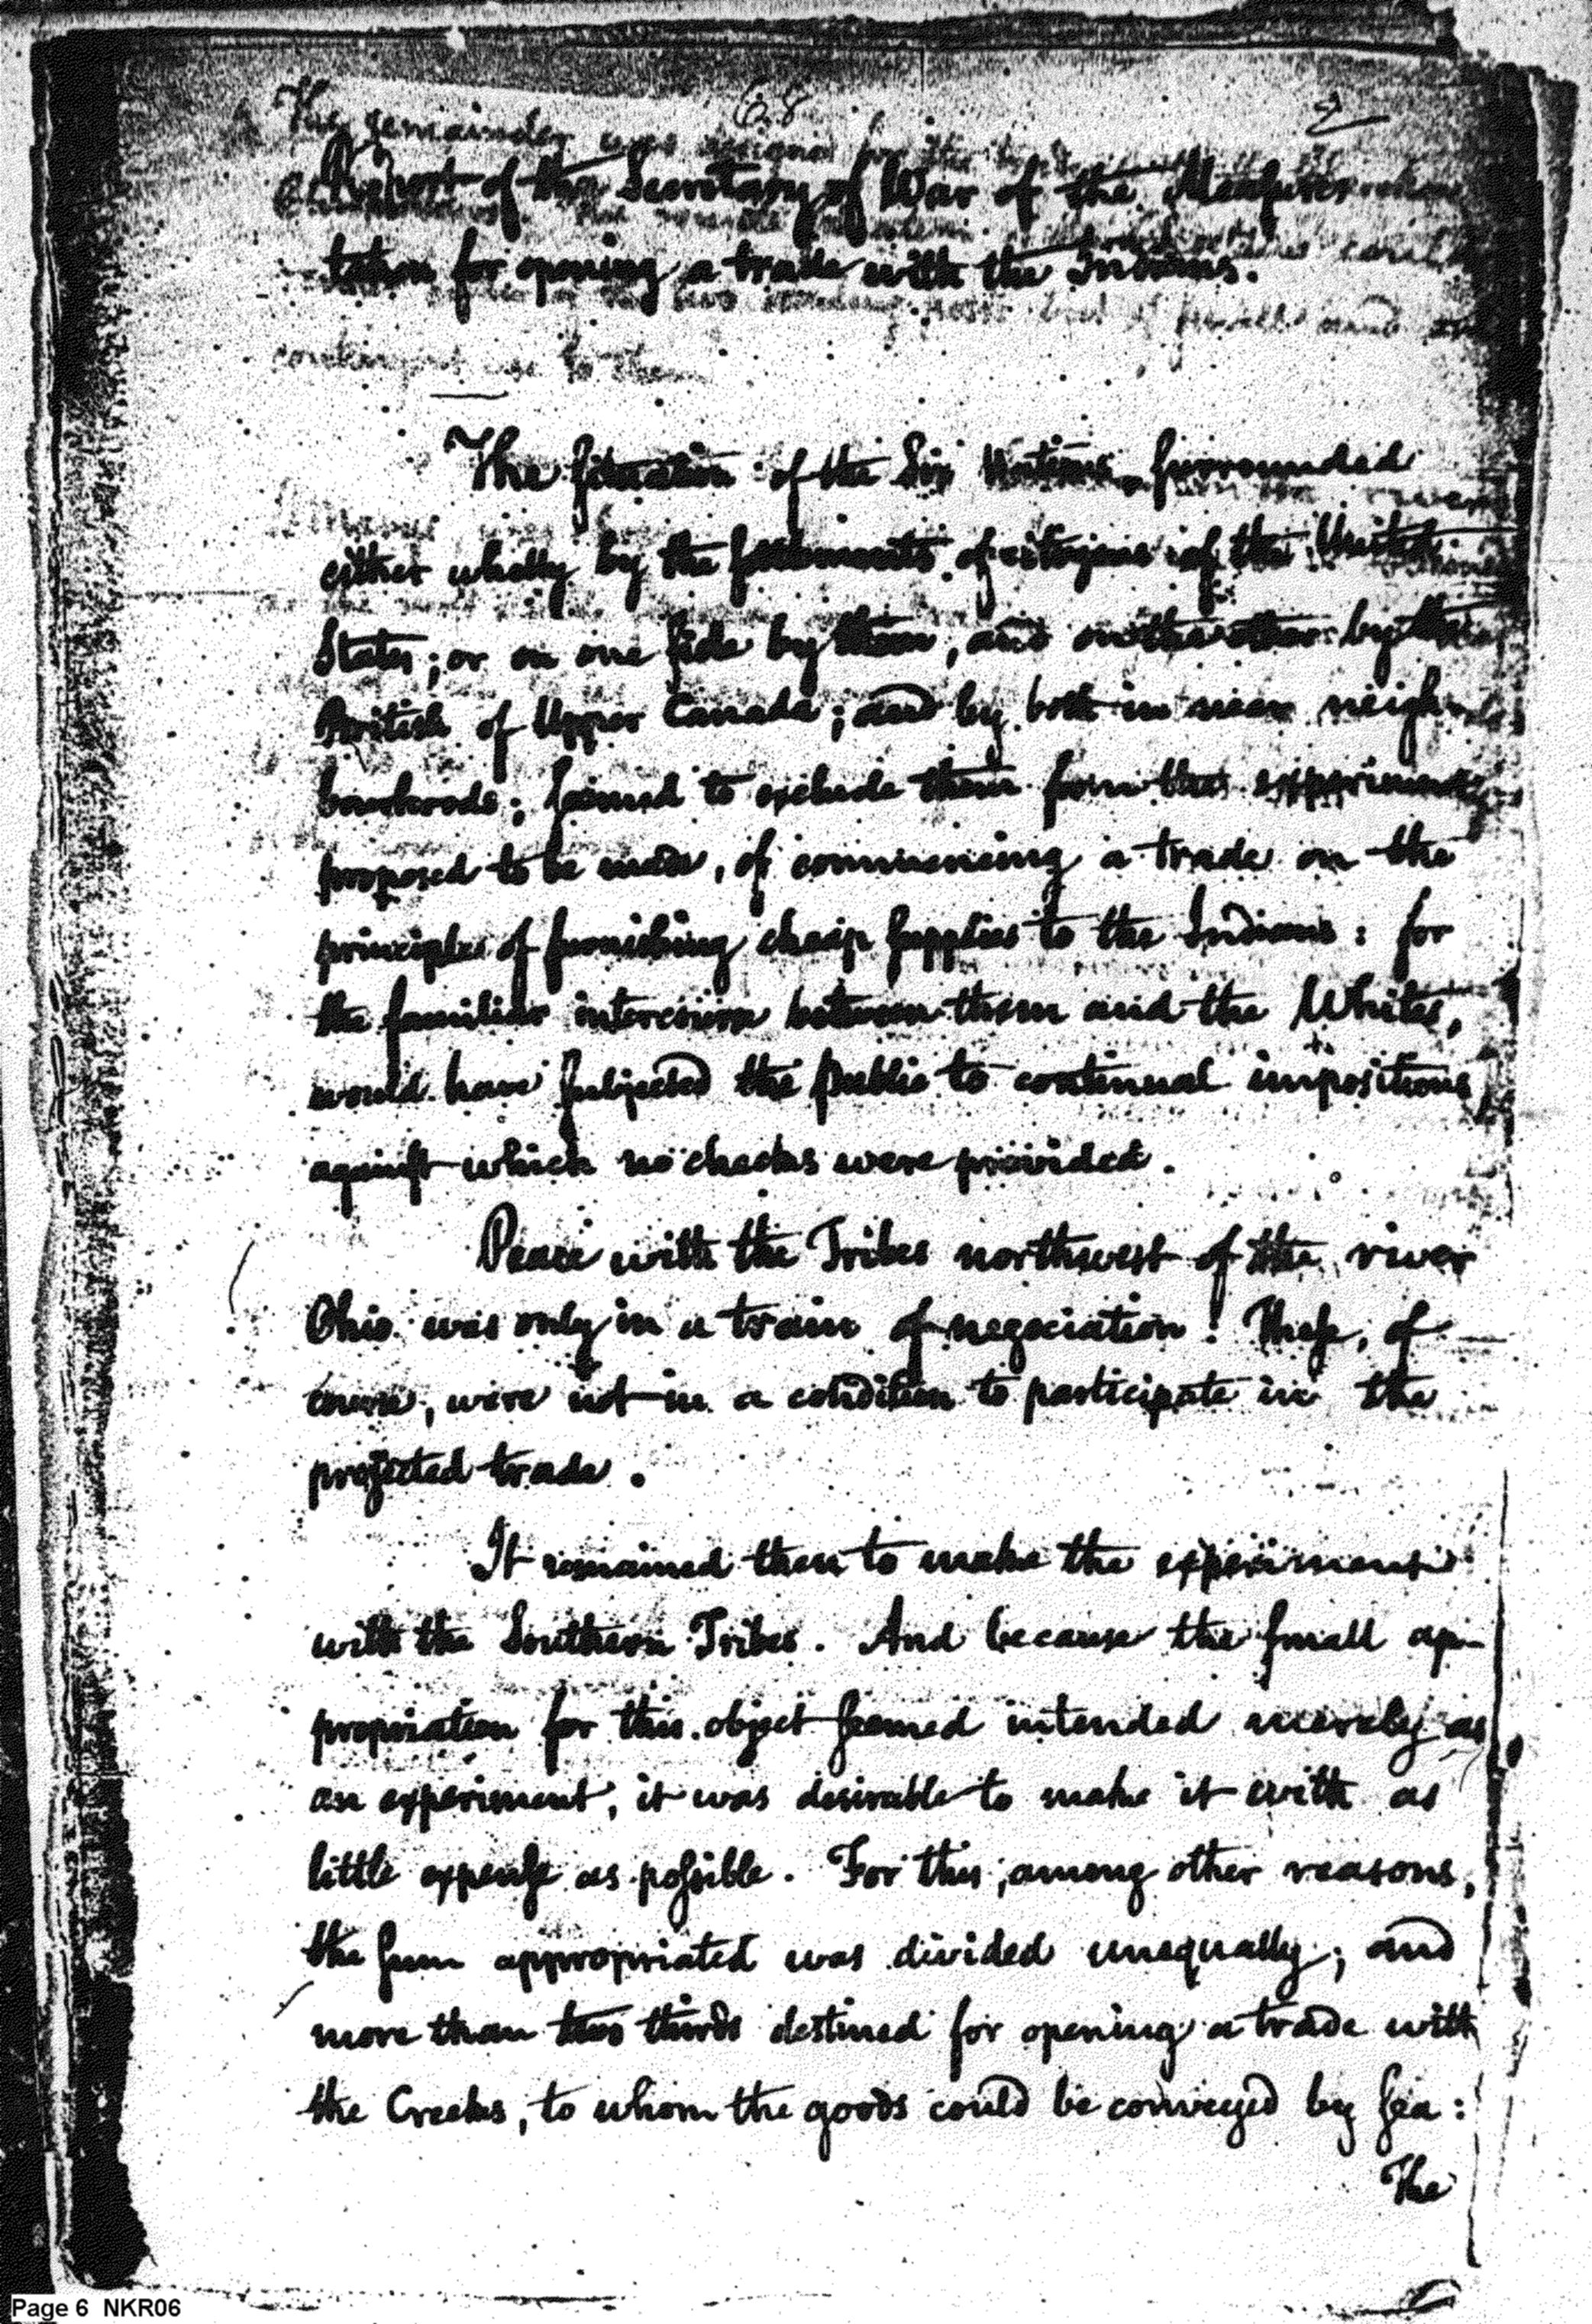 68
Report of the Secretary of War of the Measures
taken for opening a trade with the Indians.
The situation of the Six Nations, surrounded
either wholly by the settlements of citizens of the United
States; or on one side by them, and on the other by the
British of Upper Canada; and by both in near neigh-
bourhoods; seemed to exclude them from the experiment
proposed to be made, of commencing a trade on the
principles of furnishing cheap supplies to the Indians: for
the familiar intercourse between them and the Whites,
would have subjected the public to continual impositions
against which no checks were provided.
Peace with the Tribes northwest of the river
Ohio was only in a train of negociation: These, of
course, were not in a condition to participate in the
projected trade.
It remained then to make the experiment
with the Southern Tribes. And because the small ap-
propriation for this object seemed intended merely as
an experiment, it was desirable to make it with as
little expense as possible. For this, among other reasons,
the sum appropriated was divided unequally; and
more than two thirds destined for opening a trade with
the Creeks, to whom the goods could be conveyed by sea:
The
Page 6 NKR06